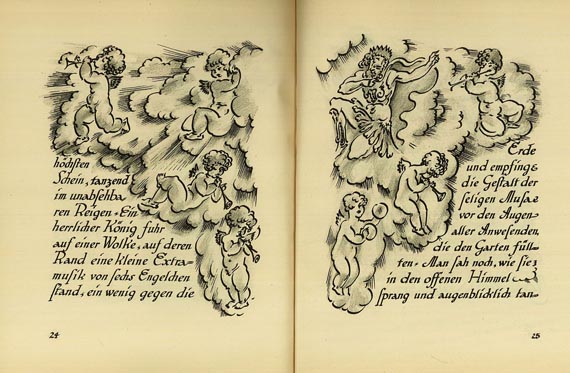 höchsten
Schein, tanzend
im unabsehba
ren Reigen. Ein
herrlicher König fuhr
auf einer Wolke, auf deren
Rand eine kleine Extra=
musik von sechs Engelchen
stand, ein wenig gegen die
24
Erde
und empfing
die Gestalt der
seligen Musa
vor den Augen
aller Anwesenden,
die den Garten füll=
ten. Man sah noch, wie sie
in den offenen Himmel
sprang und augenblicklich tan=
25